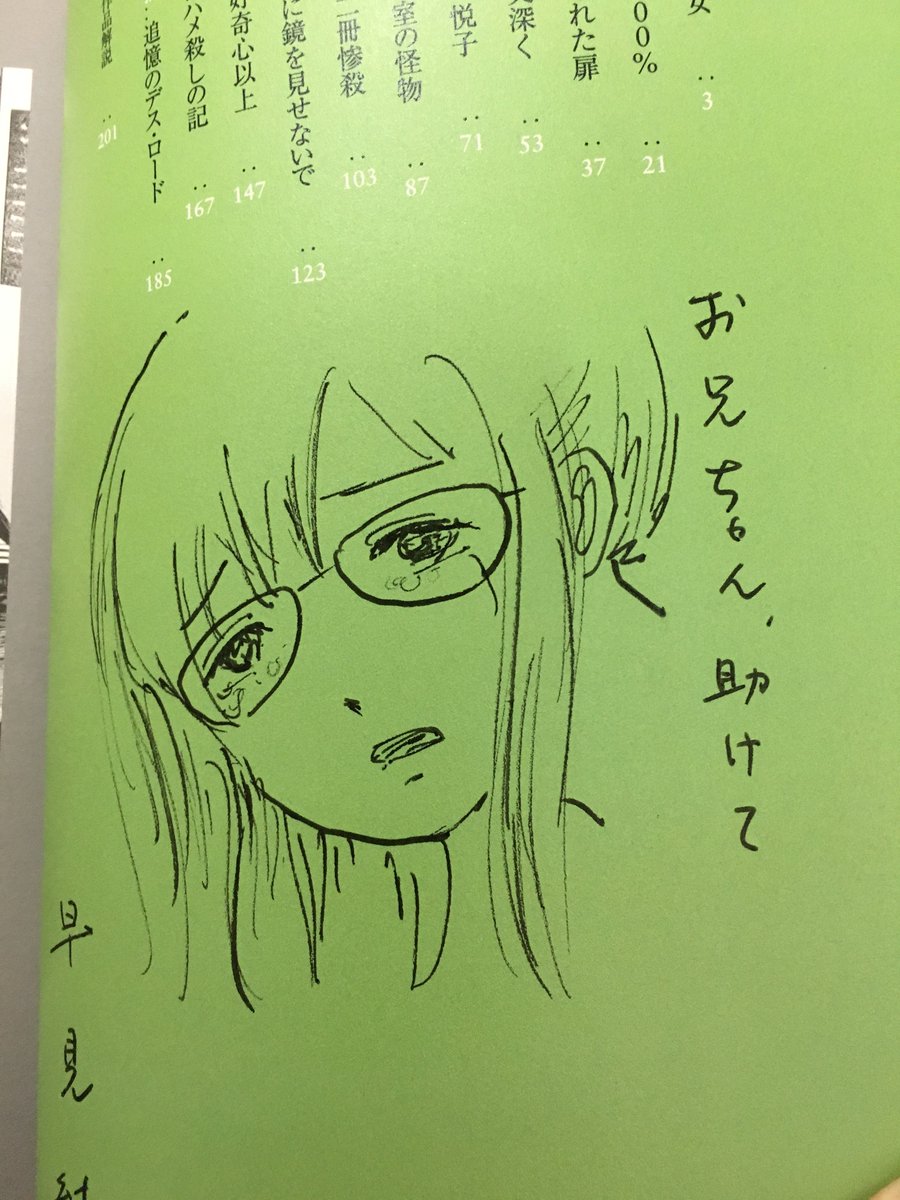 女 ‥3
00% ‥21
れた扉 ‥37
深く ‥53
悦子 ‥71
室の怪物 ‥87
二冊惨殺 ‥103
に鏡を見せないで ‥123
好奇心以上 ‥147
ハメ殺しの記 ‥167
追憶のデス・ロード ‥185
作品解説 ‥201
お兄ちゃん、助けて
早見